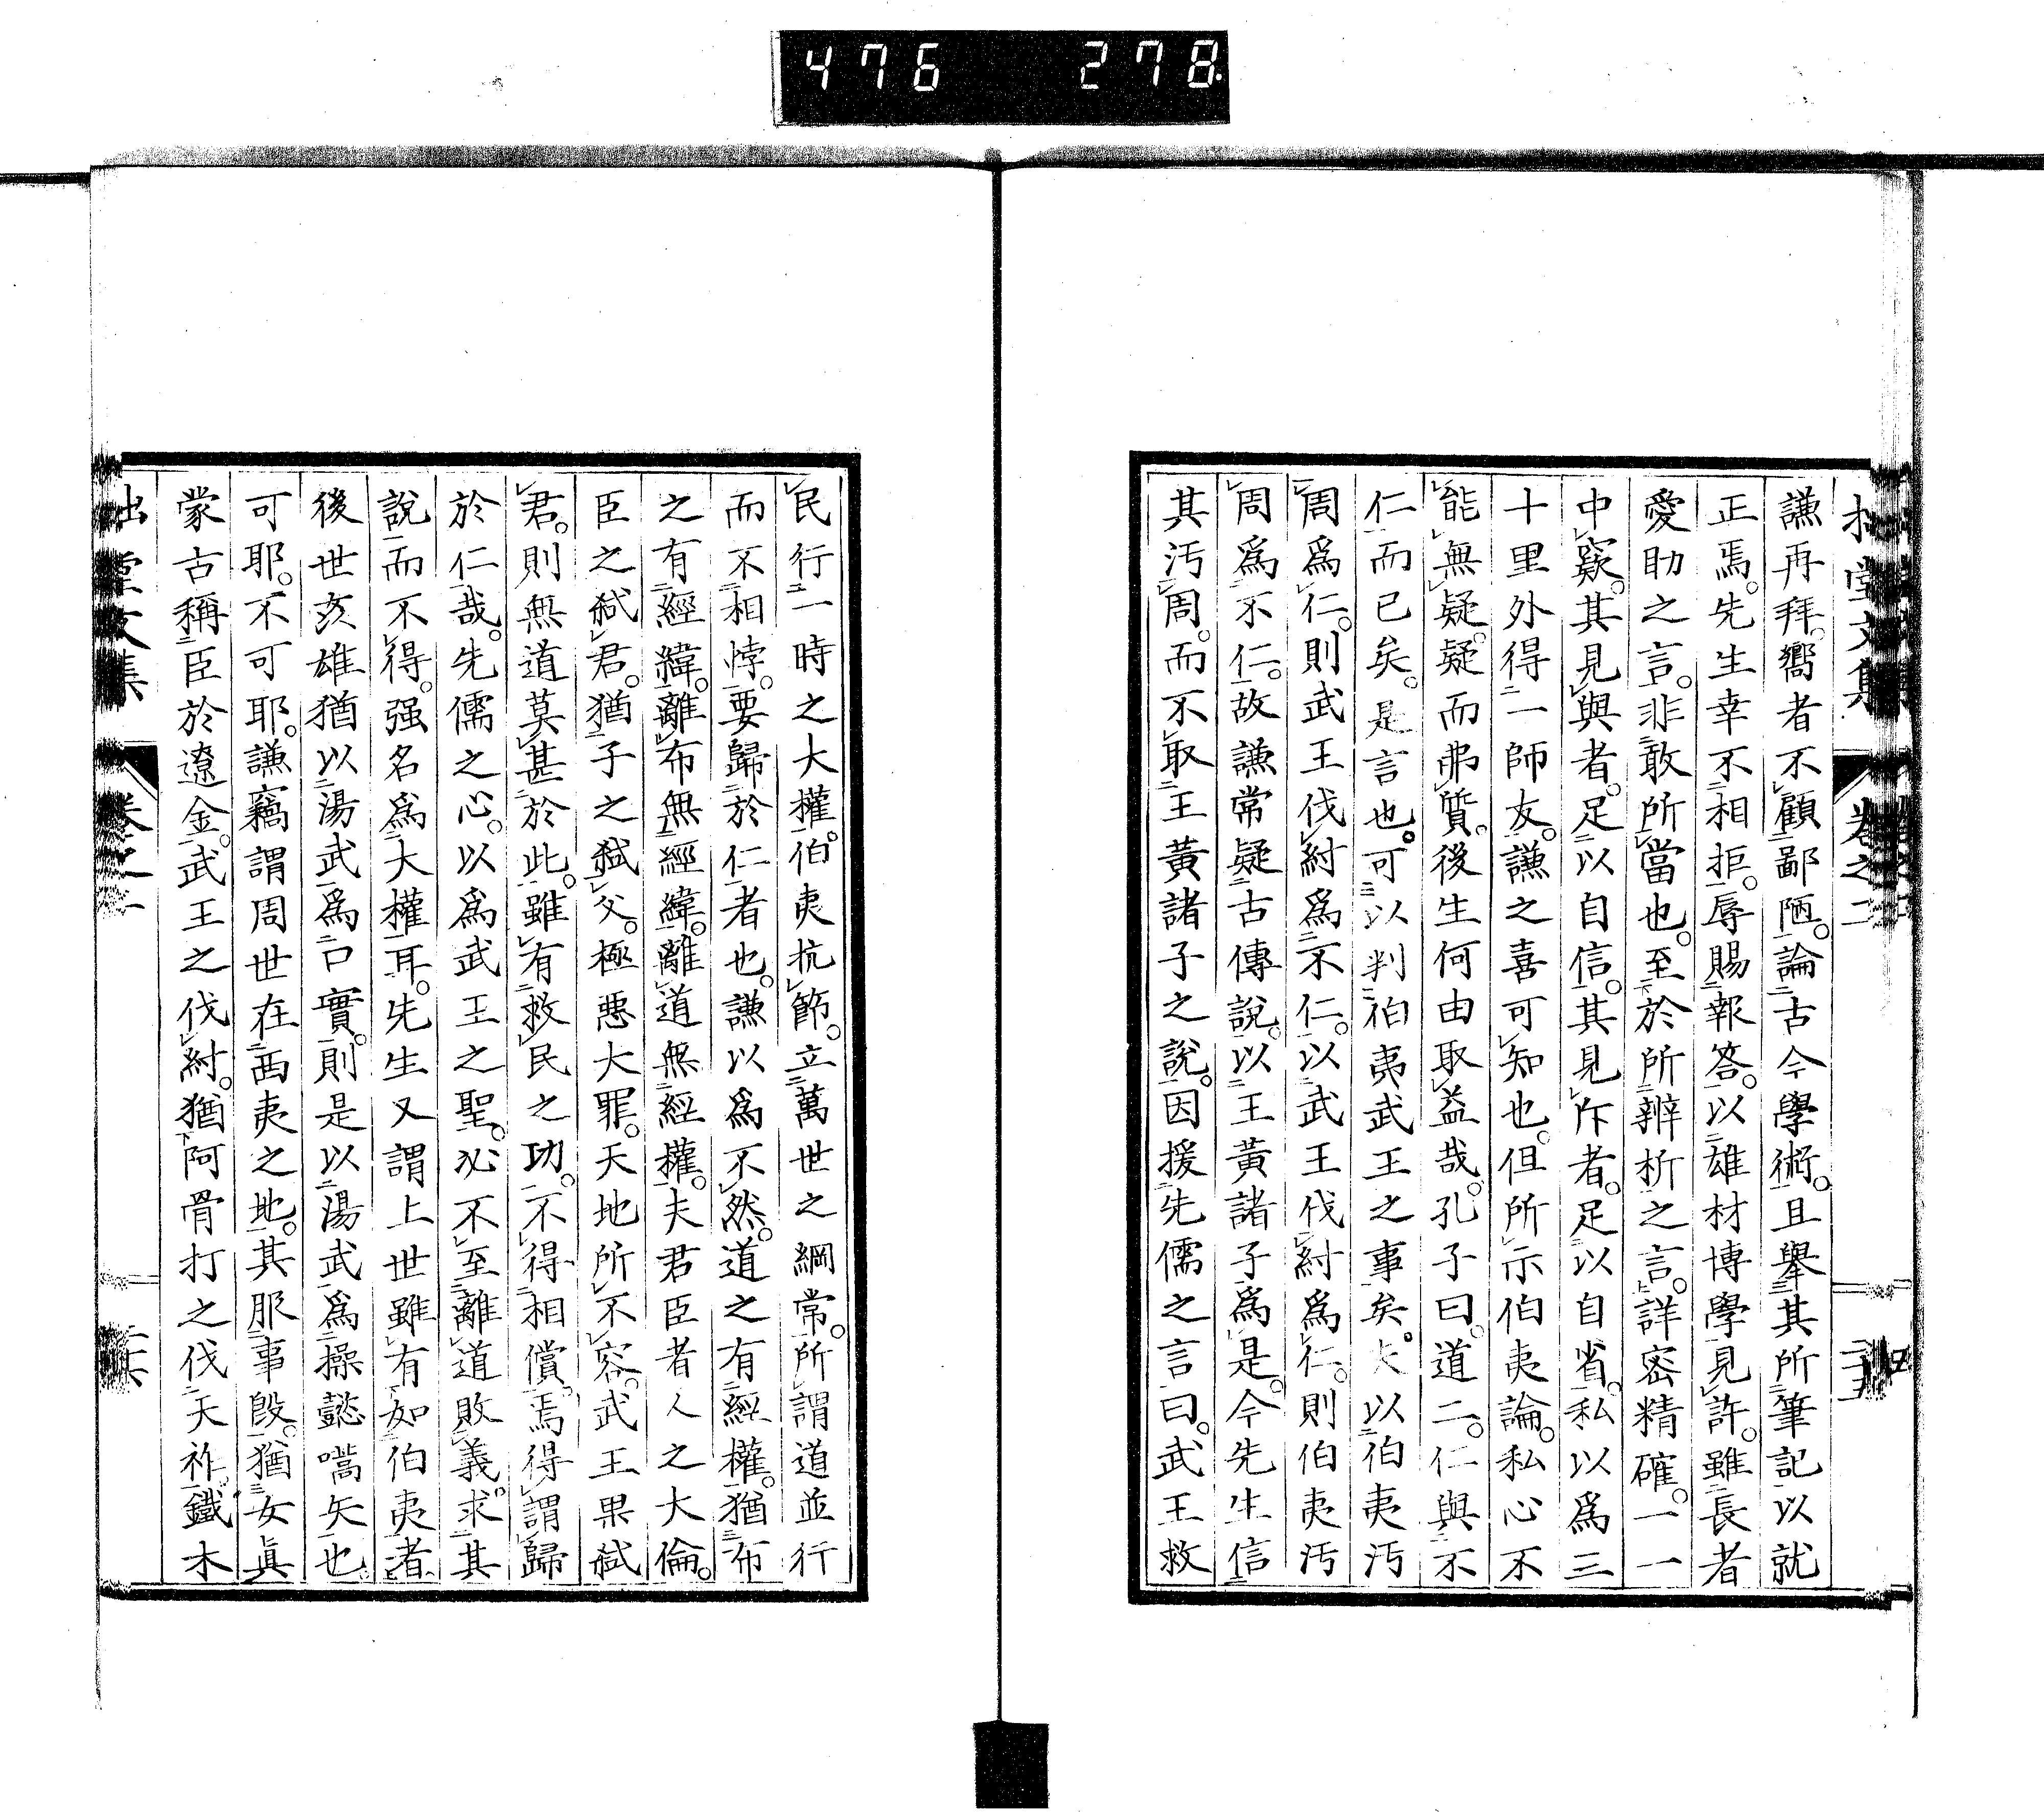 476 278
拙堂文集 卷之二
謙再拜。嚮者不顧鄙陋。論古今學術。且舉其所筆記以就
正焉。先生幸不相拒。辱賜報答。以雄材博學見許。雖長者
愛助之言。非敢所當也。至於所辨析之言。詳密精確。一一
中窾。其見與者。足以自信。其見斥者。足以自省。私以爲三
十里外得一師友。謙之喜可知也。但所示伯夷論。私心不
能無疑。疑而弗質。後生何由取益哉。孔子曰。道二。仁與不
仁而已矣。是言也。可以判伯夷武王之事矣。夫以伯夷汚
周爲仁。則武王伐紂爲不仁。以武王伐紂爲仁。則伯夷汚
周爲不仁。故謙常疑古傳說。以王黃諸子爲是。今先生信
其汚周。而不取王黃諸子之說。因援先儒之言曰。武王救
民行一時之大權。伯夷抗節。立萬世之綱常。所謂道並行
而不相悖。要歸於仁者也。謙以爲不然。道之有經權。猶布
之有經緯。離布無經緯。離道無經權。夫君臣者人之大倫。
臣之弑君。猶子之弑父。極惡大罪。天地所不容。武王果弑
君。則無道莫甚於此。雖有救民之功。不得相償。焉得謂歸
於仁哉。先儒之心。以爲武王之聖。必不至離道敗義。求其
說而不得。强名爲大權耳。先生又謂上世雖有如伯夷者。
後世亥雄猶以湯武爲口實。則是以湯武爲操懿嚆矢也。
可耶。不可耶。謙竊謂周世在西夷之地。其服事殷。猶女眞
蒙古稱臣於遼金。武王之伐紂。猶阿骨打之伐天祚。鐵木
拙堂文集 卷之二